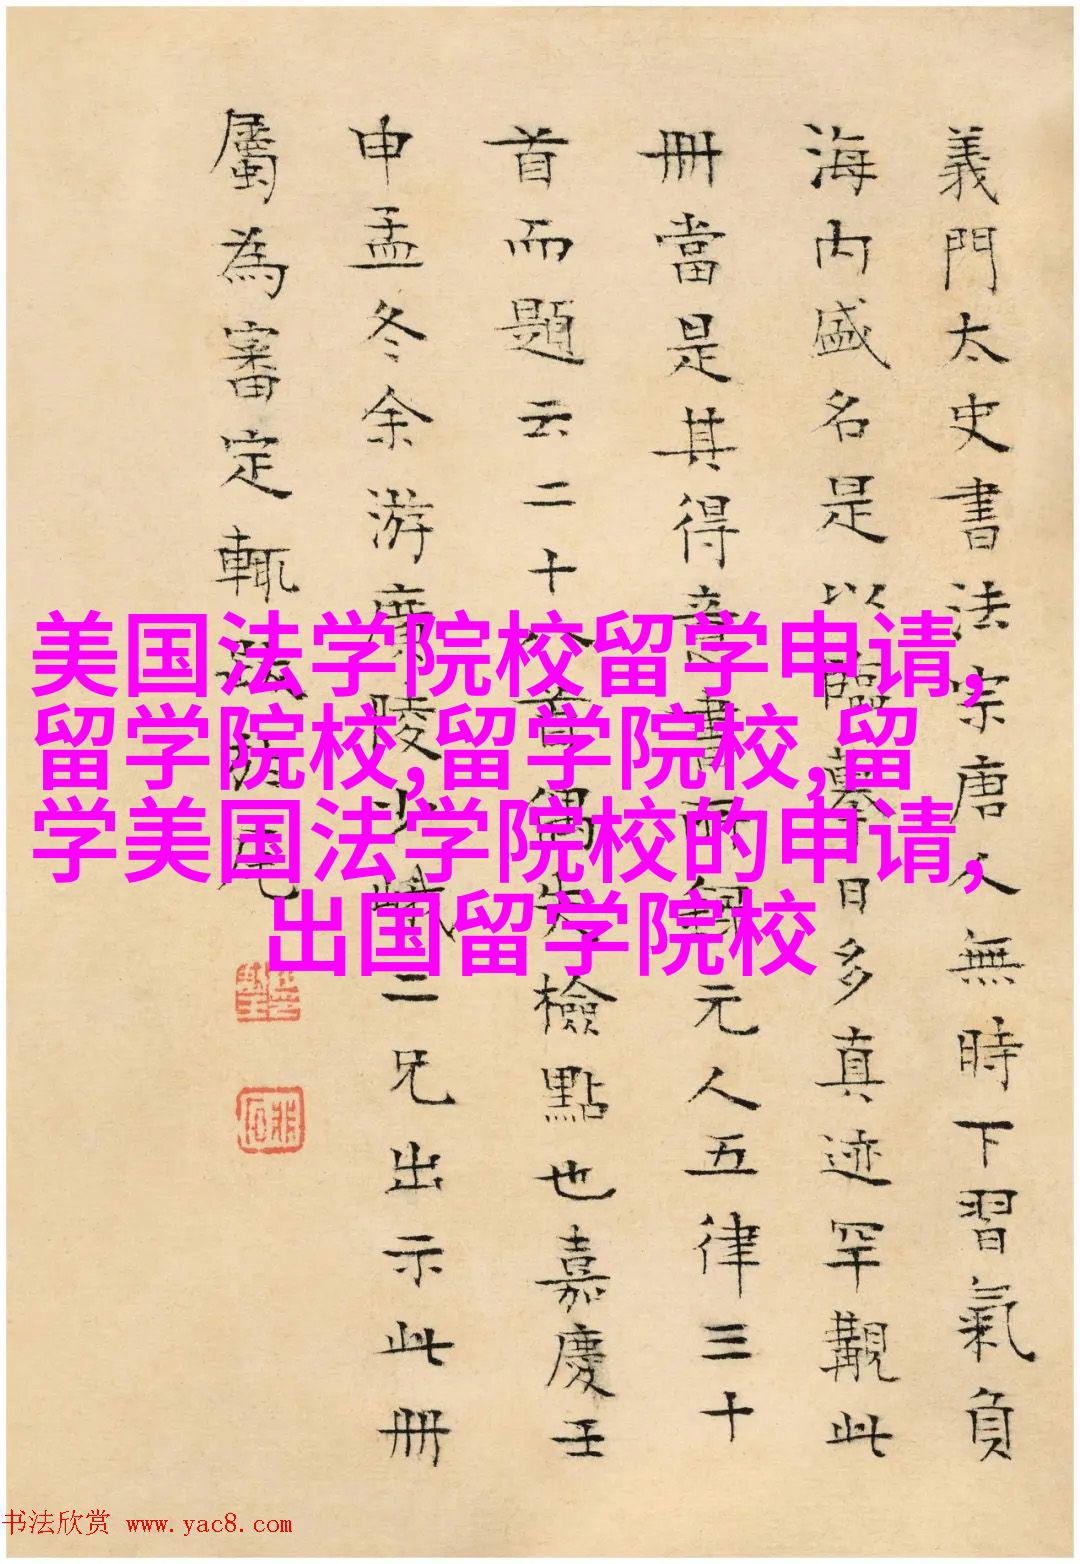 義門太史書法宗唐人無時下習氣負
海内盛名是以臨摹日多真迹罕覯此
冊當是其得意書所録元人五律三十
首而題云二十八首偶失檢點也嘉慶壬
申孟冬余游廣陵少二兄出示此冊
屬為審定輒跋尾
美国法学院校留学申请,
留学院校,留学院校,留
学美国法学院校的申请,
出国留学院校
书法欣赏 www.yac8.com